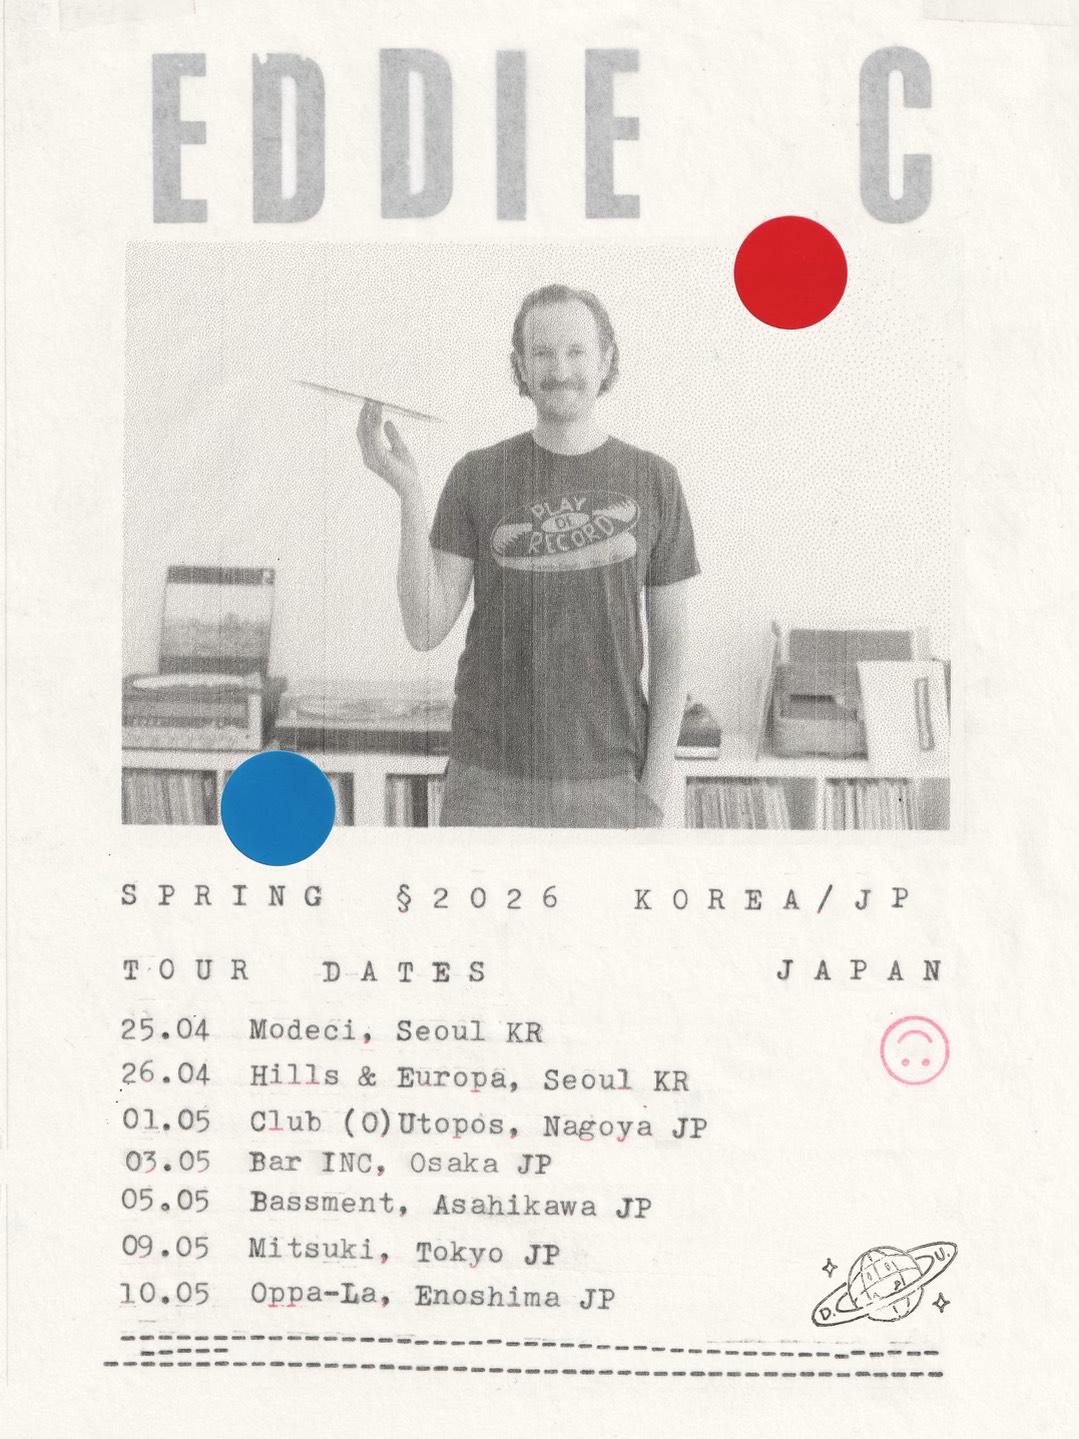 EDDIE C
PLAY
DE
RECORD
SPRING §2026 KOREA/JP
TOUR DATES JAPAN
25.04 Modeci, Seoul KR
26.04 Hills & Europa, Seoul KR
01.05 Club (O)Utopos, Nagoya JP
03.05 Bar INC, Osaka JP
05.05 Bassment, Asahikawa JP
09.05 Mitsuki, Tokyo JP
10.05 Oppa-La, Enoshima JP
D. U.